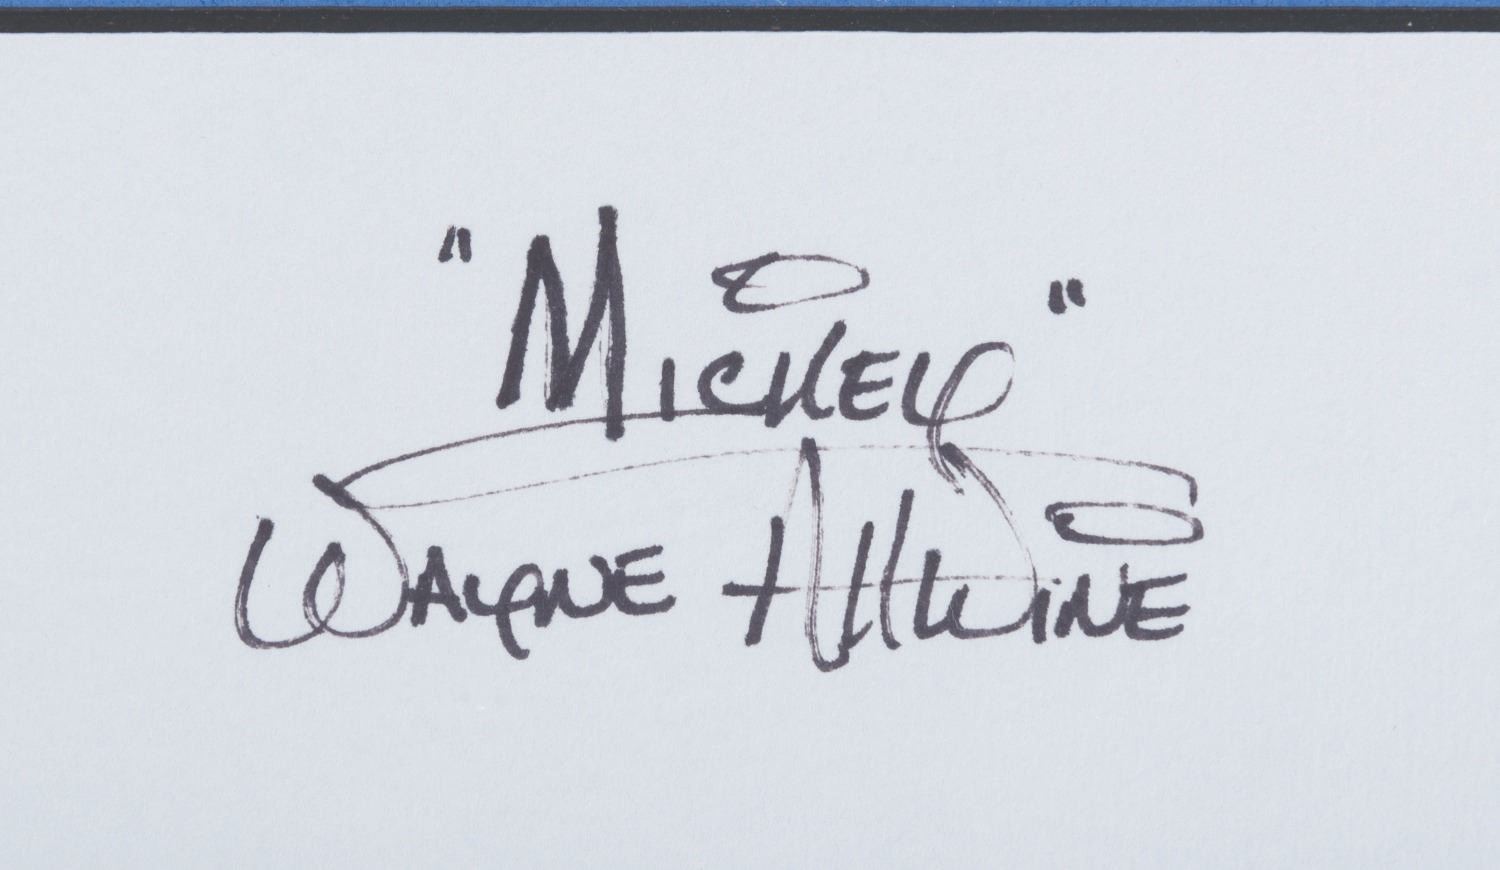 "MicKEy"
WAyNE AllWiNE